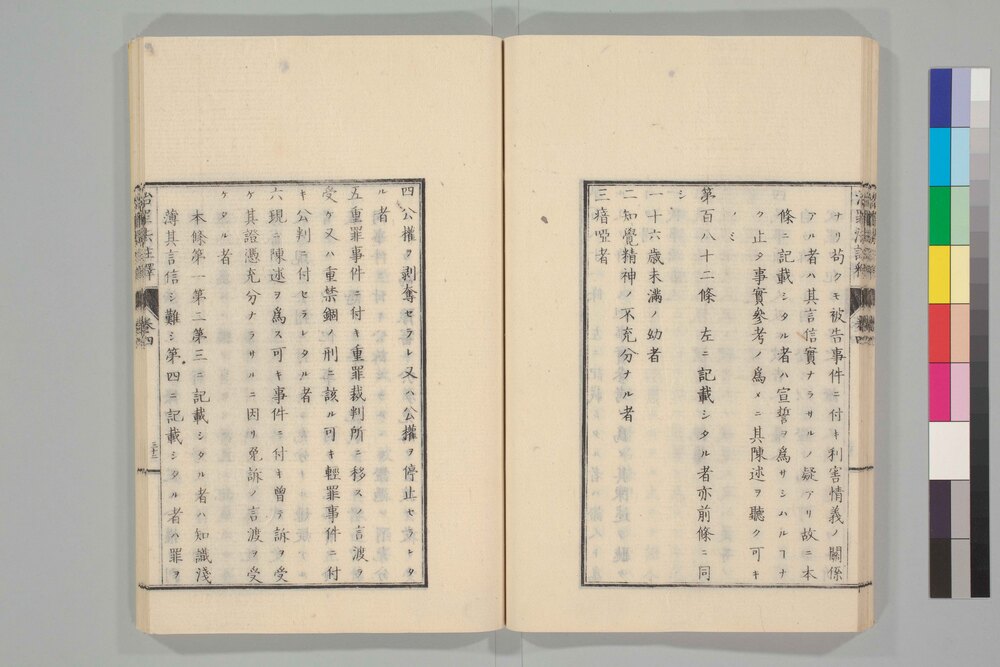 ナリ苟クモ被告事件ニ付キ利害情義ノ關係
アル者ハ其言信實ナラサルノ疑アリ故ニ本
條ニ記載シタル者ハ宣誓ヲ爲サシハルヿナ
ク止タ事實參考ノ爲メニ其陳述ヲ聽ク可キ
ノミ
第百八十二條 左ニ記載シタル者亦前條ニ同
シ
一 十六歲未滿ノ幼者
二 知覺精神ノ不充分ナル者
三 瘖啞者
治罪法註釋 卷四
四 公權ヲ剥奪セラレ又ハ公權ヲ停止セラレタ
ル者
五 重罪事件ニ付キ重罪裁判所ニ移スノ言渡ヲ
受ケ又ハ重禁錮ノ刑ニ該ル可キ輕罪事件ニ付
キ公判ニ付セラレタル者
六 現ニ陳述ヲ爲ス可キ事件ニ付キ曾テ訴ヲ受
ケ其證憑充分ナラサルニ因リ免訴ノ言渡ヲ受
ケタル者
本條第一第二第三ニ記載シタル者ハ知識淺
薄其言信シ難シ第四ニ記載シタル者ハ罪ヲ
治罪法註釋 卷四